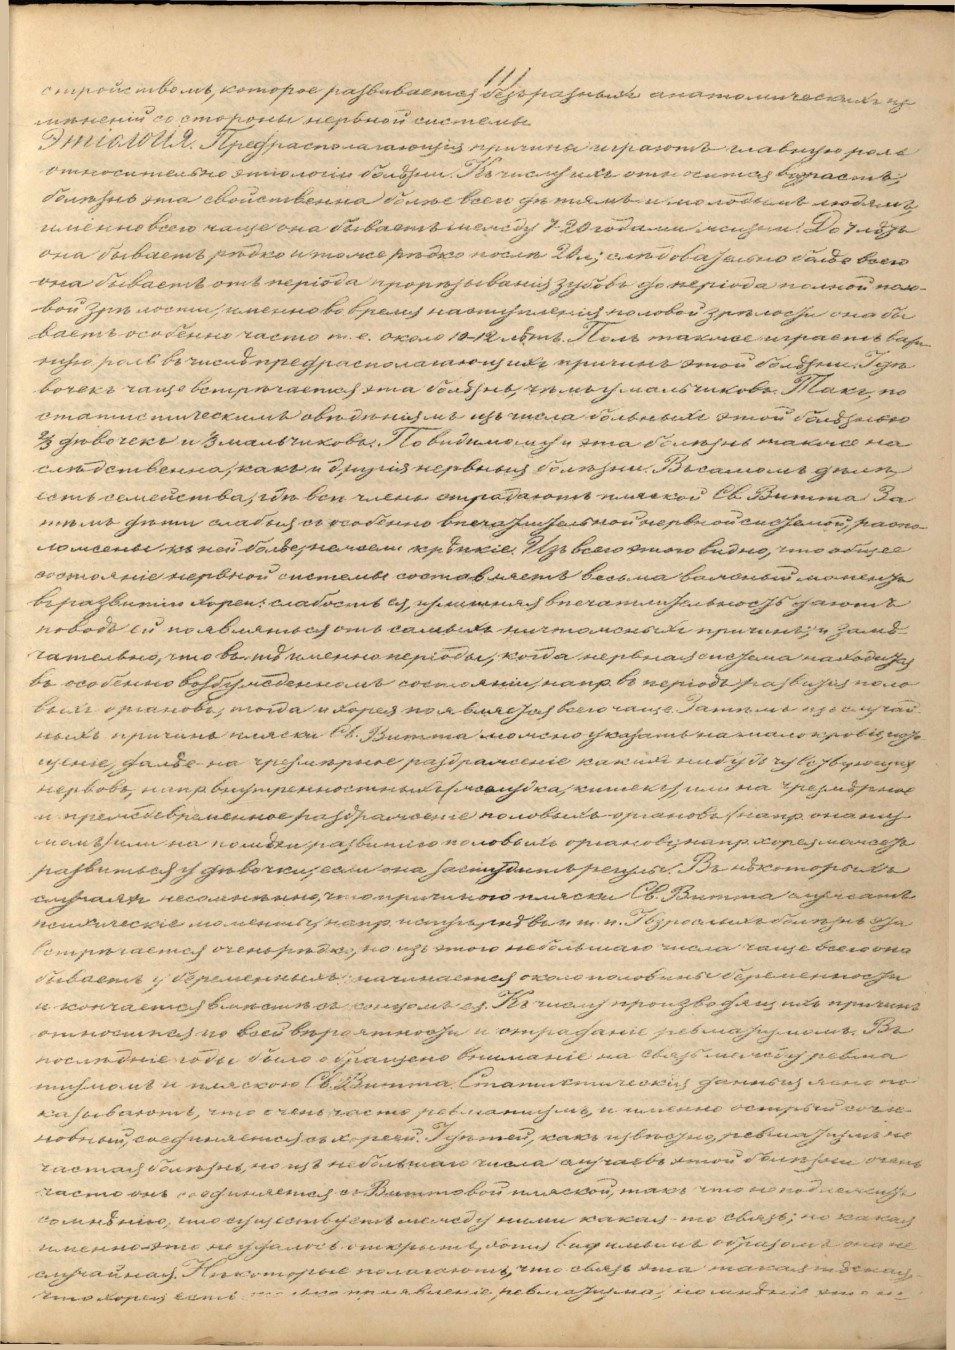 111
стройствомъ, которое развивается безъ разныхъ анатомическихъ из
мѣненій со стороны нервной системы.
Этіологія. Предрасполагающія причины играютъ главную роль
относительно этіологіи болѣзни. Къ числу ихъ относится возрастъ;
болѣзнь эта свойственна болѣе всего дѣтямъ и молодымъ людямъ,
именно всего чаще она бываетъ между 7-20 годами жизни. До 7 лѣтъ
она бываетъ рѣдко и тоже рѣдко послѣ 20 л; слѣдовательно болѣе всего
она бываетъ отъ періода прорѣзыванія зубовъ до періода полной поло-
вой зрѣлости, именно во время наступленія половой зрѣлости она бы
ваетъ особенно часто т. е. около 10-12 лѣтъ. Полъ также играетъ важ
ную роль въ числѣ предрасполагающихъ причинъ этой болѣзни. У дѣ
вочекъ чаще встрѣчается эта болѣзнь, чѣмъ у мальчиковъ. Такъ, по
статистическимъ свѣдѣніямъ изъ числа больныхъ этой болѣзнью
2/3 дѣвочекъ и 1/3 мальчиковъ. Повидимому и эта болѣзнь также на
слѣдственна, какъ и другія нервныя болѣзни. Въ самомъ дѣлѣ,
есть семейства, гдѣ все члены страдаютъ пляской Св. Витта. За
тѣмъ дѣти слабыя съ особенно впечатлительной нервной системой, распо
ложены къ ней болѣе нежели крѣпкіе. Изъ всего этого видно, что общее
состояніе нервной системы составляетъ весьма важный моментъ
въ развитіи хореи: слабость ея, излишняя впечатлительность даютъ
поводъ ей появляться отъ самыхъ ничтожныхъ причинъ; и замѣ-
чательно, что въ тѣ именно періоды, когда нервная система находится
въ особенно возбужденномъ состояніи, напр. въ періодъ развитія поло
выхъ органовъ, тогда и хорея появляется всего чаще. Затѣмъ изъ случай
ныхъ причинъ пляски Св. Витта можно указать на малокровіе, исто
щеніе, далѣе на чрезмѣрное раздраженіе какихъ нибудь чувствующихъ
нервовъ, напр. внутренностныхъ (желудка, кишекъ) или на чрезмѣрное
и преждевременное раздраженіе половыхъ органовъ (напр. онаниз
момъ) или на развитію половыхъ органовъ; напр. хорея можетъ
развиться у дѣвочки, если она застудитъ регулы. Въ нѣкоторыхъ
случаяхъ несомнѣнно, что причиною пляски Св. Витта служатъ
психическіе моменты, напр. испугъ, гнѣвъ и т. п. У взрослыхъ болѣзнь эта
встрѣчается очень рѣдко, но изъ этого небольшаго числа чаще всего она
бываетъ у беременныхъ: начинается около половины беременности
и кончается вмѣстѣ съ концомъ ея. Къ числу производящихъ причинъ
относится по всей вѣроятности и страданіе ревматизмомъ. Въ
послѣдніе годы было обращено вниманіе на связь между ревма
тизмомъ и пляскою Св. Витта. Статистическія данныя ясно по
казываютъ, что очень часто ревматизмъ, и именно острый сочле
новный, соединяется съ хореей. У дѣтей, какъ извѣстно, ревматизмъ не
частая болѣзнь, но изъ небольшаго числа случаевъ этой болѣзни очень
часто онъ соединяется съ Виттовой пляской, такъ что не подлежитъ
сомнѣнію, что существуетъ между ними какая-то связь; но какая
именно это не удалось открыть, хотя видимымъ образомъ она не
случайная. Нѣкоторые полагаютъ, что связь эта такая тѣсная,
что хорея есть проявленіе ревматизма, но мнѣніе это не